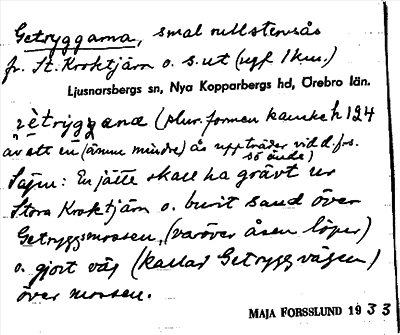 Getryggarna, smal rullstensås
fr. St. Kroktjärn o. s. ut (ngf 1 km.)
Ljusnarsbergs sn, Nya Kopparbergs hd, Örebro län.
(plur. formen kanske h 124
av att en (ännu mindre) ås uppträder vid d. förs.
sö ände)
Sägn: En jätte skall ha grävt ur
Stora Kroktjärn o. burit sand över
Getryggsmossen, (varöver åsen löper)
o. gjort väg (kallad Getryggsvägen)
över mossen.
MAJA FORSSLUND 1933